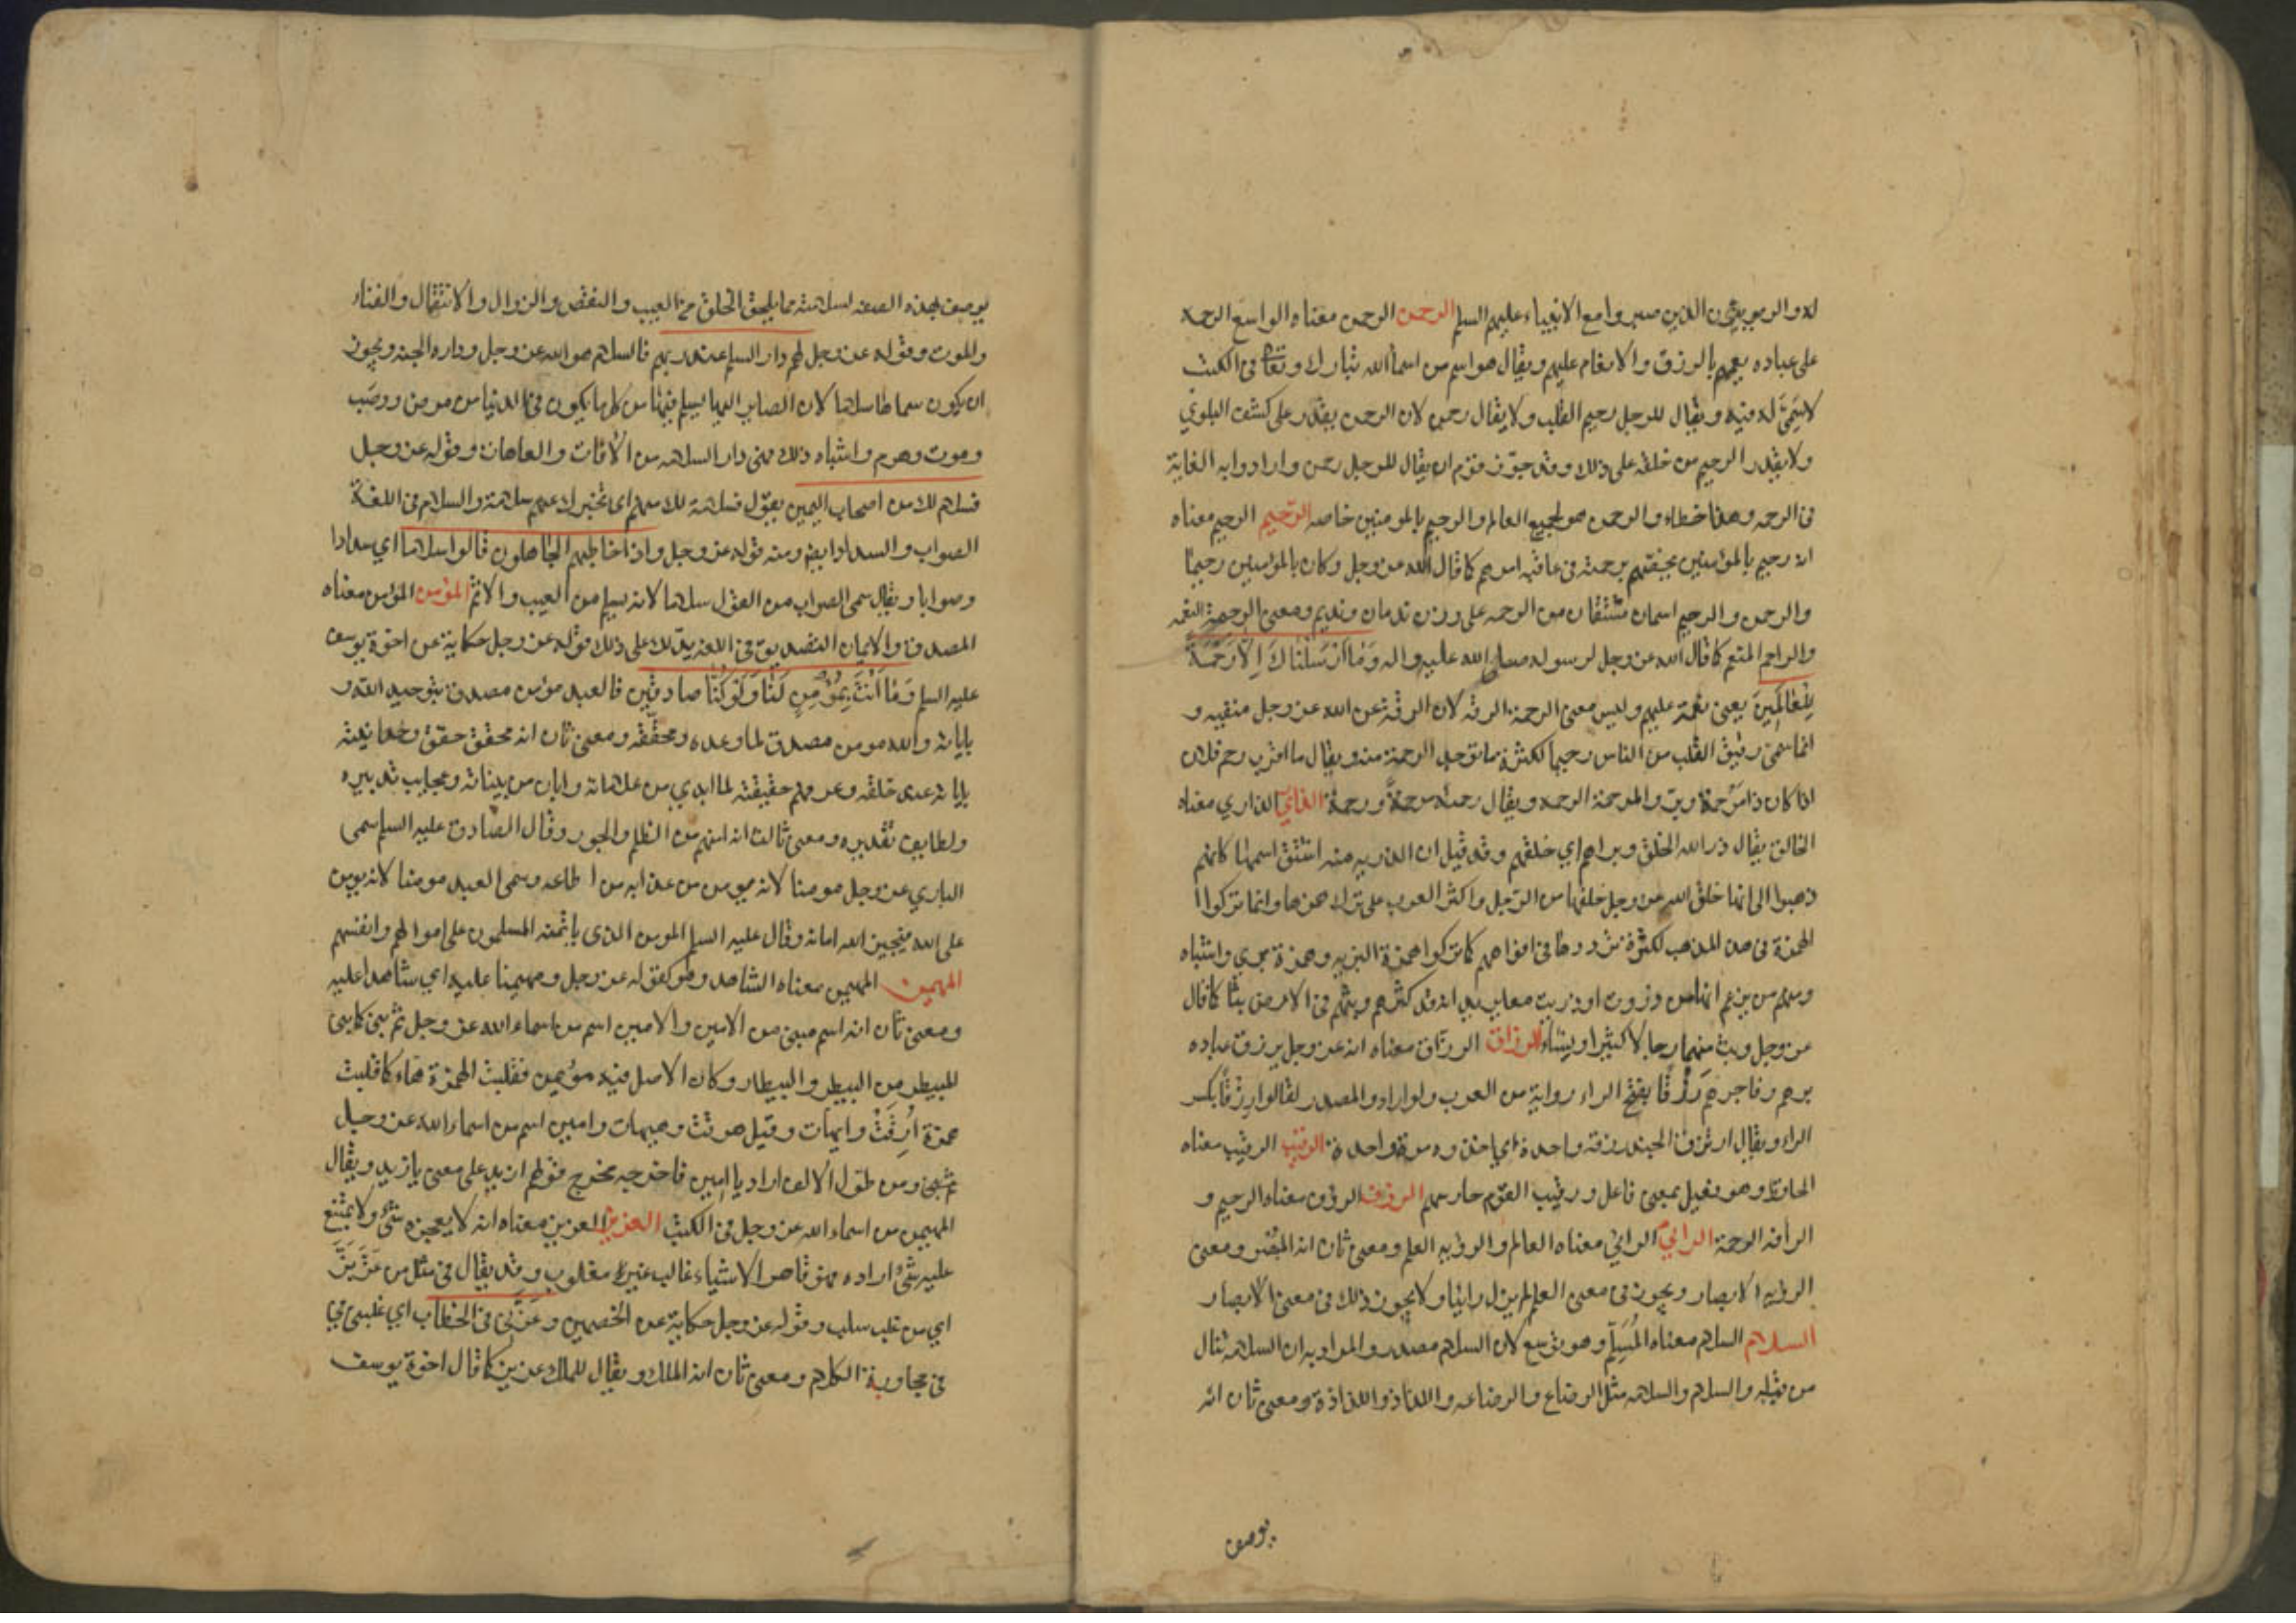 له والربيون الذين صبروا مع الانبياء عليهم السلم الرحمن الرحمن معناه الواسع الرحمة
على عباده يعمهم بالرزق والانعام عليهم ويقال هو اسم من اسماء الله تبارك وتعالى في الكتب
لا سمي له فيه ويقال للرجل رحيم القلب ولا يقال رحمن لان الرحمن يقدر على كشف البلوي
ولا يقدر الرحيم من خلقه على ذلك وقد جوز قوم ان يقال للرجل رحمن وارادوا به الغاية
في الرحمه وهذا خطاء والرحمن هو لجميع العالم والرحيم بالمومنين خاصه الرحيم الرحيم معناه
انه رحيم بالمؤمنين يخصهم برحمته في عاقبه امرهم كما قال الله عز وجل وكان بالمؤمنين رحيما
والرحمن والرحيم اسمان مشتقان من الرحمه على وزن ندمان ونديم ومعنى الرحمة النعمه
والراحم المنعم كما قال الله عز وجل لرسوله صلى الله عليه واله وَمَا اَرْسَلْنَاكَ اِلَّا رَحْمَةً
لِلْعَالَمِينَ يعني نعمة عليهم وليس معنى الرحمة الرقه لان الرقة عن الله عز وجل منفيه و
انما سمي رقيق القلب من الناس رحيما لكثرة ما توجد الرحمة منه ويقال ما اقرب رحم فلان
اذا كان ذا مَرْحمة وبر والمرحمة الرحمه ويقال رحمته مرحمةً ورحمة الذاري الذاري معناه
الخالق يقال ذرا الله الخلق وبراهم اي خلقهم وقد قيل ان الذريه منه اشتق اسمها كانهم
ذهبوا الى انها خلق الله عز وجل خلقها من الرجل واكثر العرب على ترك همزها وانما تركوا
الهمزة في هذا المذهب لكثرة ترددها في افواههم كما تركوا همزة البريه وهمزة بري واشباه
ومنهم من يزعم انها من ذروت او ذريت معا يريد انه قد كثرهم وبثهم في الارض بثا كما قال
عز وجل وبث منهما رجالا كثيرا ونساء الرزاق الرزاق معناه انه عز وجل يرزق عباده
برهم وفاجرهم رَزْقًا بفتح الراء رواية من العرب ولو ارادوا المصدر لقالوا رِزْقًا بكسر
الراء ويقال ارتزق الجند رزقه واحدة اي اخذوه مرة واحدة الرقيب الرقيب معناه
الحافظ وهو فعيل بمعنى فاعل ورقيب القوم حارسهم الرؤف الرؤف معناه الرحيم و
الرأفه الرحمة الرائي الرائي معناه العالم والرؤيه العلم ومعنى ثان انه المبصر ومعنى
الرؤيه الابصار ويجوز في معنى العلم لم يزل رائيا ولا يجوز ذلك في معنى الابصار
السلام السلام معناه المُسَلِّم وهو توسع لان السلام مصدر والمراد به ان السلامة تنال
من قبله والسلام والسلامه مثل الرضاع والرضاعه واللذاذ واللذاذة ومعنى ثان انه
يوصف
يوصف بهذه الصفه لسلامته مما يلحق الخلق من العيب والنقص والزوال والانتقال والفناء
والموت وقوله عز وجل لهم دار السلم عند ربهم فالسلام هو الله عز وجل وداره الجنه ويجوز
ان يكون سماها سلاما لان الصاير اليها يسلم فيها من كل ما يكون في الدنيا من مرض ووصب
وموت وهرم واشباه ذلك فهي دار السلامه من الافات والعاهات وقوله عز وجل
فسلام لك من اصحاب اليمين يقول فسلامة لك منهم اي تخبرك عنهم سلامة والسلام في اللغة
الصواب والسداد ايضا ومنه قوله عز وجل واذا خاطبهم الجاهلون قالوا سلاما اي سدادا
وصوابا ويقال سمي الصواب من القول سلاما لانه يسلم من العيب والاثم المؤمن المؤمن معناه
المصدق والايمان التصديق في اللغه يدلك على ذلك قوله عز وجل حكاية عن اخوة يوسف
عليه السلم وَمَا اَنْتَ بِمُؤْمِنٍ لَنَا وَلَوْ كُنَّا صادقين فالعبد مؤمن مصدق بتوحيد الله و
باياته والله مومن مصدق لما وعده ومحققه ومعنى ثان انه محقق حقق وحدانيته
باياته عند خلقه وعرفهم حقيقته لما ابدي من علاماته وابان من بيناته وعجايب تدبيره
ولطايف تقديره ومعنى ثالث انه امنهم من الظلم والجور وقال الصادق عليه السلم سمي
الباري عز وجل مومنا لانه يومن من عذابه من اطاعه وسمي العبد مومنا لانه يومن
على الله فيجيز الله امانه وقال عليه السلم المومن الذي ياتمنه المسلمون على اموالهم وانفسهم
المهيمن المهيمن معناه الشاهد وهو كقوله عز وجل ومهيمنا عليه اي شاهدا عليه
ومعنى ثان انه اسم مبني من الامين والامين اسم من اسماء الله عز وجل ثم بني كما بني
المبيطر من البيطر والبيطار وكان الاصل فيه مؤيمن فقلبت الهمزة هاء كما قلبت
همزة اَرَقْتُ وايهات وقيل هرقت وهيهات وامين اسم من اسماء الله عز وجل
ومن طول الالف اراد يا امين فاخرجه مخرج قولهم ازيد على معنى يا زيد ويقال
المهيمن من اسماء الله عز وجل في الكتب العزيز العزيز معناه انه لا يعجزه شيء ولا يمتنع
عليه شيء اراده فهو قاهر الاشياء غالب غير مغلوب وقد يقال في مثل من عَزَّ بَزَّ
اي من غلب سلب وقوله عز وجل حكاية عن الخصمين وعَزَّني في الخطاب اي غلبني في
في مجاوبة الكلام ومعنى ثان انه الملك ويقال للملك عزيز كما قال اخوة يوسف